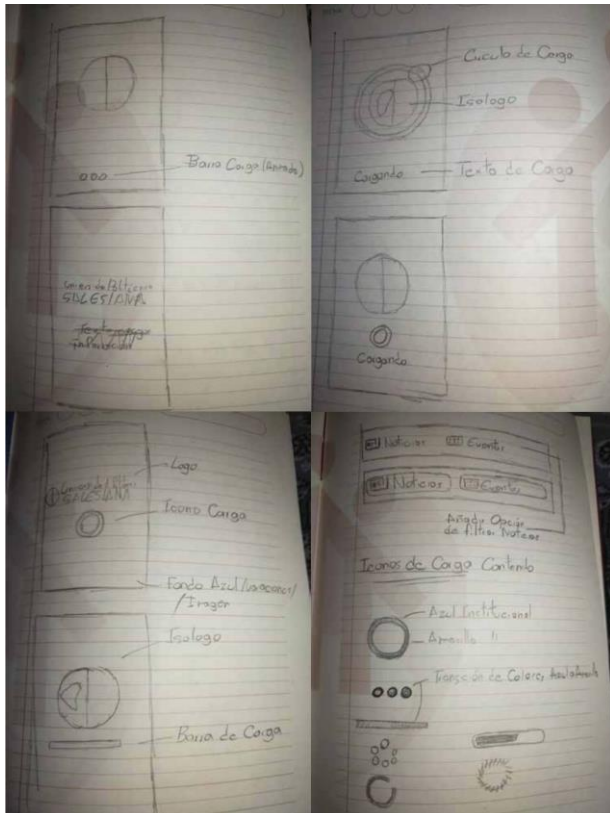 Barra Carga (Animada)
SALESIANA
Circulo de Carga
Isologo
Cargando
Texto de Carga
Cargando
Logo
SALESIANA
Icono Carga
Fondo Azul/variaciones/
/Imagen
Isologo
Barra de Carga
Noticias
Eventos
Noticias
Eventos
Añadir Opción
de filtrar Noticias
Iconos de Carga Contenido
Azul Institucional
Amarillo "
Transición de Colores, Azul a Amarillo